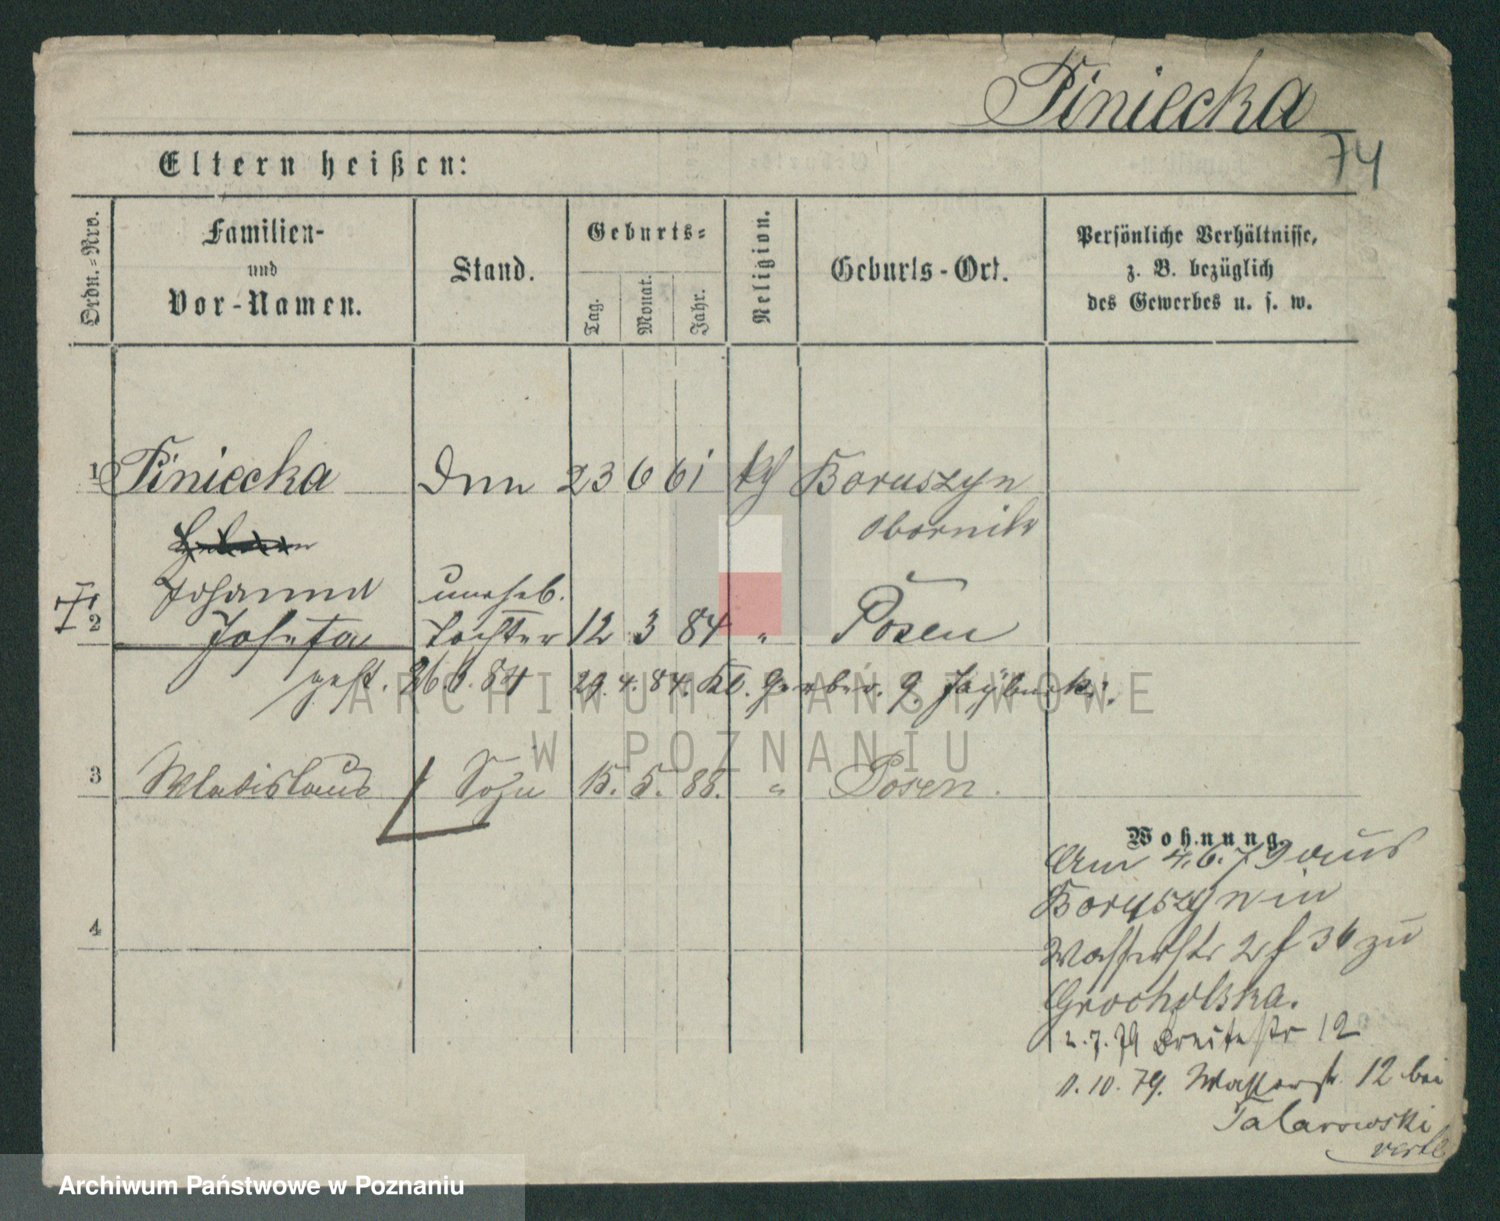 Piniecka
74
Eltern heißen:
Ordn.-Nro.
Familien-
und
Vor-Namen.
Stand.
Geburts-
Tag.
Monat.
Jahr.
Religion.
Geburts-Ort.
Persönliche Verhältnisse,
z. B. bezüglich
des Gewerbes u. s. w.
1 Piniecka 23 6 61 kth Boruszyn
Obornik
Johanna uneheb.
2 Josefa Tochter 12 3 84 " Posen
gest. 26.6.84 29.4.84. Kl. Gerber. 9.
3 Wladislaus Sohn 15. 5. 88. " Posen.
Wohnung.
Am 4.6.79 aus
Boruszyn in
Wasserstr 2 f 36 zu
Grocholska.
2.7.79 Breitestr 12
11.10.79. Wasserstr. 12 bei
Talarowski
4
ARCHIWUM PAŃSTWOWE
W POZNANIU
Archiwum Państwowe w Poznaniu